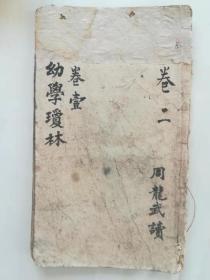 卷二
周龍武讀
卷壹
幼學瓊林